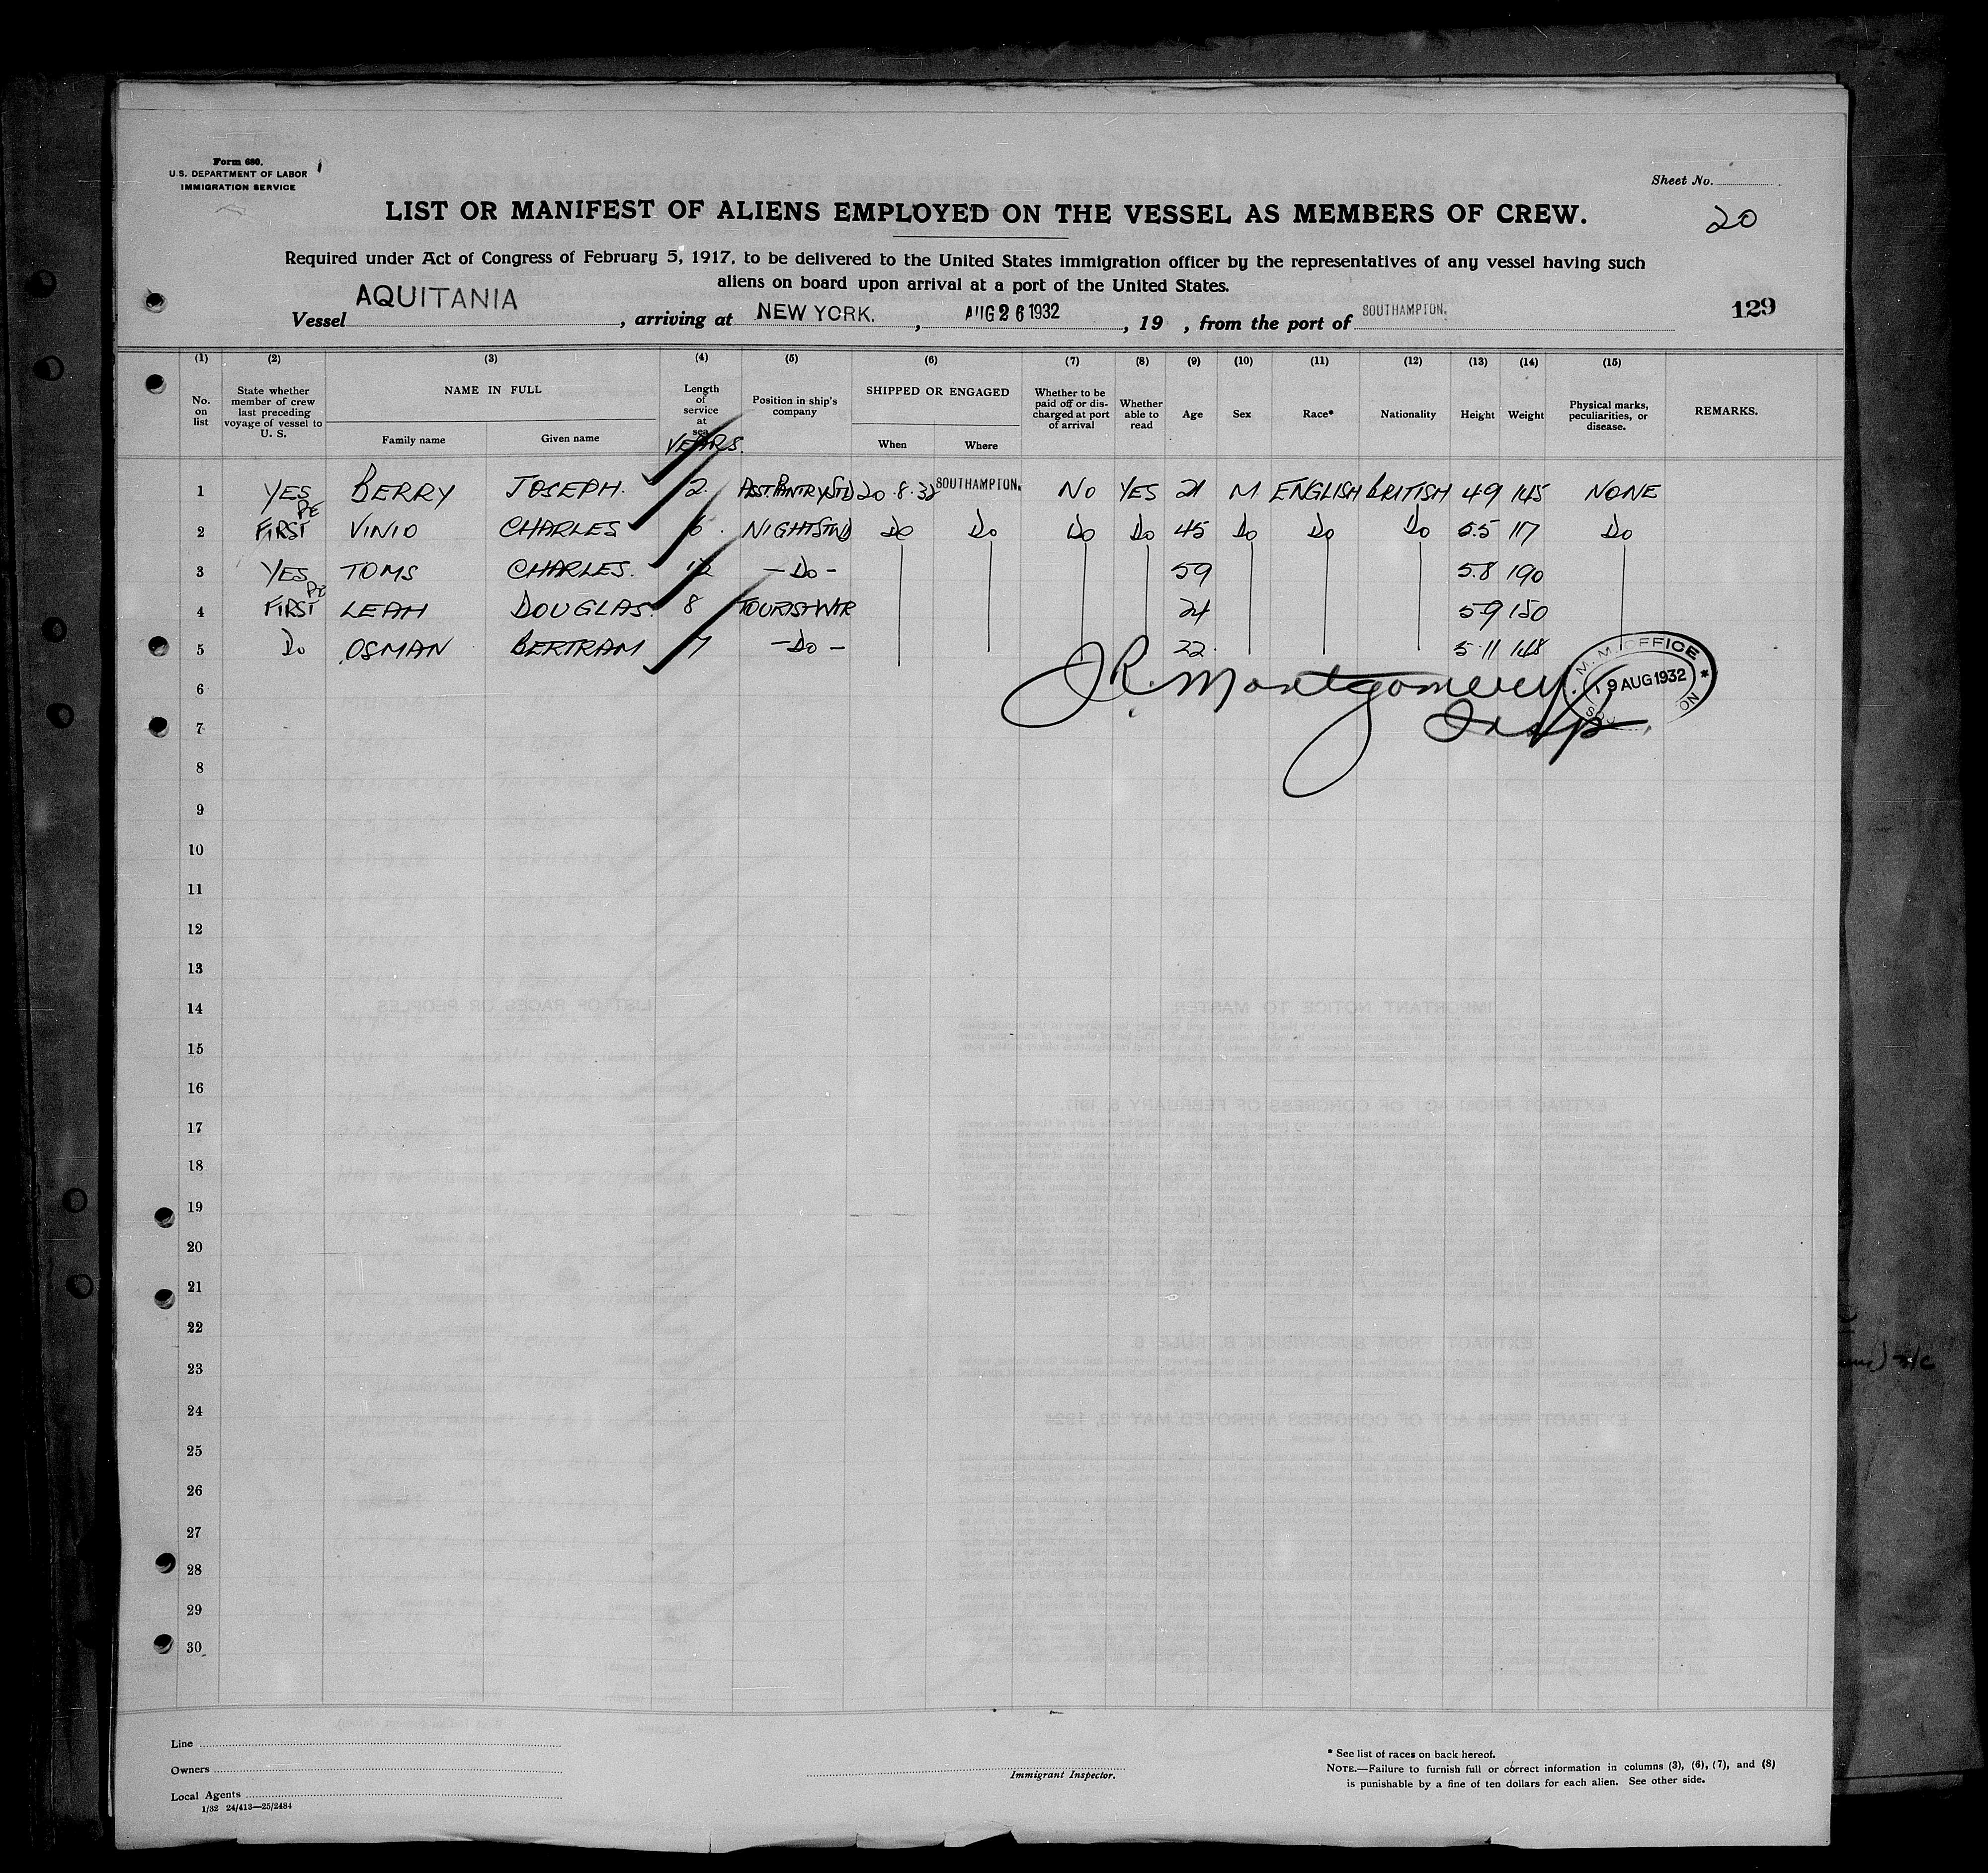 Form 680.
U.S. DEPARTMENT OF LABOR
IMMIGRATION SERVICE
Sheet No.
20
LIST OR MANIFEST OF ALIENS EMPLOYED ON THE VESSEL AS MEMBERS OF CREW.
Required under Act of Congress of February 5, 1917, to be delivered to the United States immigration officer by the representatives of any vessel having such
aliens on board upon arrival at a port of the United States.
Vessel AQUITANIA, arriving at NEW YORK., AUG 26 1932, 19 , from the port of SOUTHAMPTON.
129
(1) (2) (3) (4) (5) (6) (7) (8) (9) (10) (11) (12) (13) (14) (15)
No. on list State whether member of crew last preceding voyage of vessel to U. S. NAME IN FULL Length of service at sea Position in ship's company SHIPPED OR ENGAGED Whether to be paid off or discharged at port of arrival Whether able to read Age Sex Race* Nationality Height Weight Physical marks, peculiarities, or disease. REMARKS.
Family name Given name YEARS. When Where
1 YES BERRY JOSEPH. 2. ASST.PANTRYSTD 20.8.32 SOUTHAMPTON. NO YES 21 M ENGLISH BRITISH 4.9 145 NONE
2 RE FIRST VINIO CHARLES 6. NIGHTSTWD DO DO DO DO 45 DO DO DO 5.5 117 DO
3 YES TOMS CHARLES. 12 -DO- 59 5.8 190
4 RE FIRST LEAH DOUGLAS. 8 TOURIST WTR 24 5.9 150
5 DO OSMAN BERTRAM 7 -DO- 22 5.11 148
JR. Montgomery
Insp.
M.M. OFFICE
19 AUG 1932
6
7
8
9
10
11
12
13
14
15
16
17
18
19
20
21
22
23
24
25
26
27
28
29
30
Line
Owners
Local Agents
1/32 24/413—25/2484
Immigrant Inspector.
* See list of races on back hereof.
NOTE.—Failure to furnish full or correct information in columns (3), (6), (7), and (8)
is punishable by a fine of ten dollars for each alien. See other side.